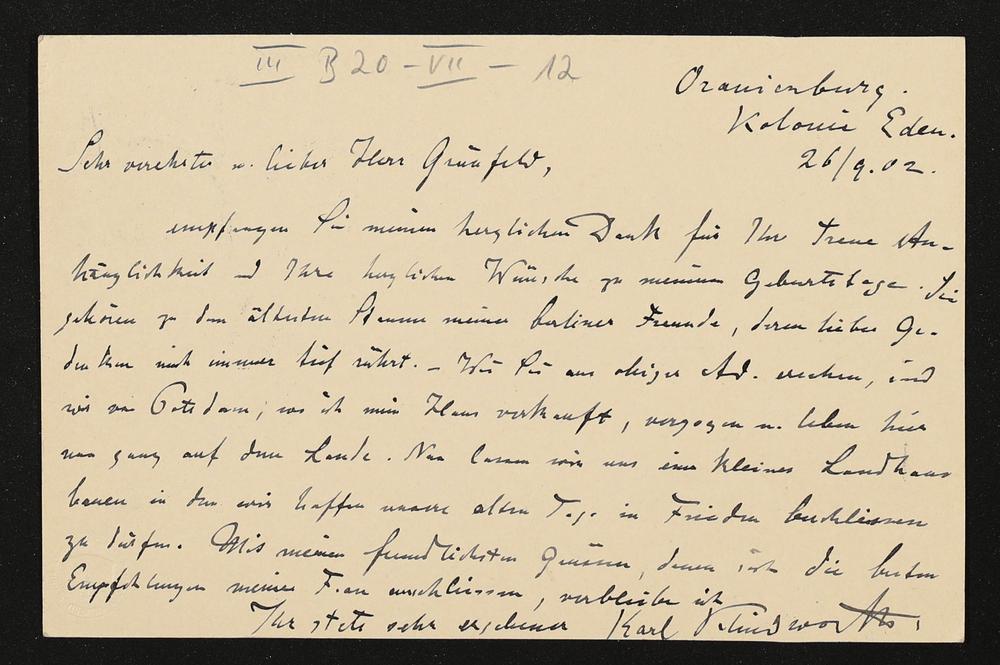 III B 20 - VII - 12
Oranienburg.
Kolonie Eden.
26/9.02.
Sehr verehrter u. lieber Herr Grünfeld,
empfangen Sie meinen herzlichen Dank für Ihre treue An-
hänglichkeit und Ihre herzlichen Wünsche zu meinem Geburtstage. Sie
gehören zu dem ältesten Stamme meiner Berliner Freunde, deren liebes Ge-
denken mich immer tief rührt. - Wie Sie aus obiger Ad. ersehen, sind
wir von Potsdam, wo ich mein Haus verkauft, verzogen u. leben hier
nun ganz auf dem Lande. Nun lassen wir uns ein kleines Landhaus
bauen in dem wir hoffen unsere alten Tage in Frieden beschliessen
zu dürfen. Mit meinen freundlichsten Grüssen, denen sich die besten
Empfehlungen meiner Frau anschliessen, verbleibe ich
Ihr stets sehr ergebener Karl Klindworth.